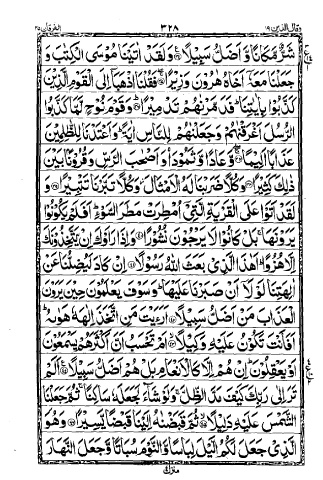 وقال الذين ١٩ ٣٢٨ الفرقان ٢٥
شَرٌّ مَّكَانًا وَّاَضَلُّ سَبِيْلًا وَلَقَدْ اٰتَيْنَا مُوْسَى الْكِتٰبَ وَ
جَعَلْنَا مَعَهٗۤ اَخَاهُ هٰرُوْنَ وَزِيْرًا فَقُلْنَا اذْهَبَاۤ اِلَى الْقَوْمِ الَّذِيْنَ
كَذَّبُوْا بِاٰيٰتِنَا فَدَمَّرْنٰهُمْ تَدْمِيْرًا وَقَوْمَ نُوْحٍ لَّمَّا كَذَّبُوا
الرُّسُلَ اَغْرَقْنٰهُمْ وَجَعَلْنٰهُمْ لِلنَّاسِ اٰيَةً وَاَعْتَدْنَا لِلظّٰلِمِيْنَ
عَذَابًا اَلِيْمًا وَّعَادًا وَّثَمُوْدَا۟ وَاَصْحٰبَ الرَّسِّ وَقُرُوْنًۢا بَيْنَ
ذٰلِكَ كَثِيْرًا وَكُلًّا ضَرَبْنَا لَهُ الْاَمْثَالَ وَكُلًّا تَبَّرْنَا تَتْبِيْرًا وَ
لَقَدْ اَتَوْا عَلَى الْقَرْيَةِ الَّتِيْۤ اُمْطِرَتْ مَطَرَ السَّوْءِ اَفَلَمْ يَكُوْنُوْا
يَرَوْنَهَا بَلْ كَانُوْا لَا يَرْجُوْنَ نُشُوْرًا وَاِذَا رَاَوْكَ اِنْ يَّتَّخِذُوْنَكَ
اِلَّا هُزُوًا اَهٰذَا الَّذِيْ بَعَثَ اللّٰهُ رَسُوْلًا اِنْ كَادَ لَيُضِلُّنَا عَنْ
اٰلِهَتِنَا لَوْلَاۤ اَنْ صَبَرْنَا عَلَيْهَا وَسَوْفَ يَعْلَمُوْنَ حِيْنَ يَرَوْنَ
الْعَذَابَ مَنْ اَضَلُّ سَبِيْلًا اَرَءَيْتَ مَنِ اتَّخَذَ اِلٰهَهٗ هَوٰىهُ
اَفَاَنْتَ تَكُوْنُ عَلَيْهِ وَكِيْلًا اَمْ تَحْسَبُ اَنَّ اَكْثَرَهُمْ يَسْمَعُوْنَ
اَوْ يَعْقِلُوْنَ اِنْ هُمْ اِلَّا كَالْاَنْعَامِ بَلْ هُمْ اَضَلُّ سَبِيْلًا اَلَمْ
تَرَ اِلٰى رَبِّكَ كَيْفَ مَدَّ الظِّلَّ وَلَوْ شَآءَ لَجَعَلَهٗ سَاكِنًا ثُمَّ جَعَلْنَا
الشَّمْسَ عَلَيْهِ دَلِيْلًا ثُمَّ قَبَضْنٰهُ اِلَيْنَا قَبْضًا يَّسِيْرًا وَهُوَ
الَّذِيْ جَعَلَ لَكُمُ الَّيْلَ لِبَاسًا وَّالنَّوْمَ سُبَاتًا وَّجَعَلَ النَّهَارَ
منزل